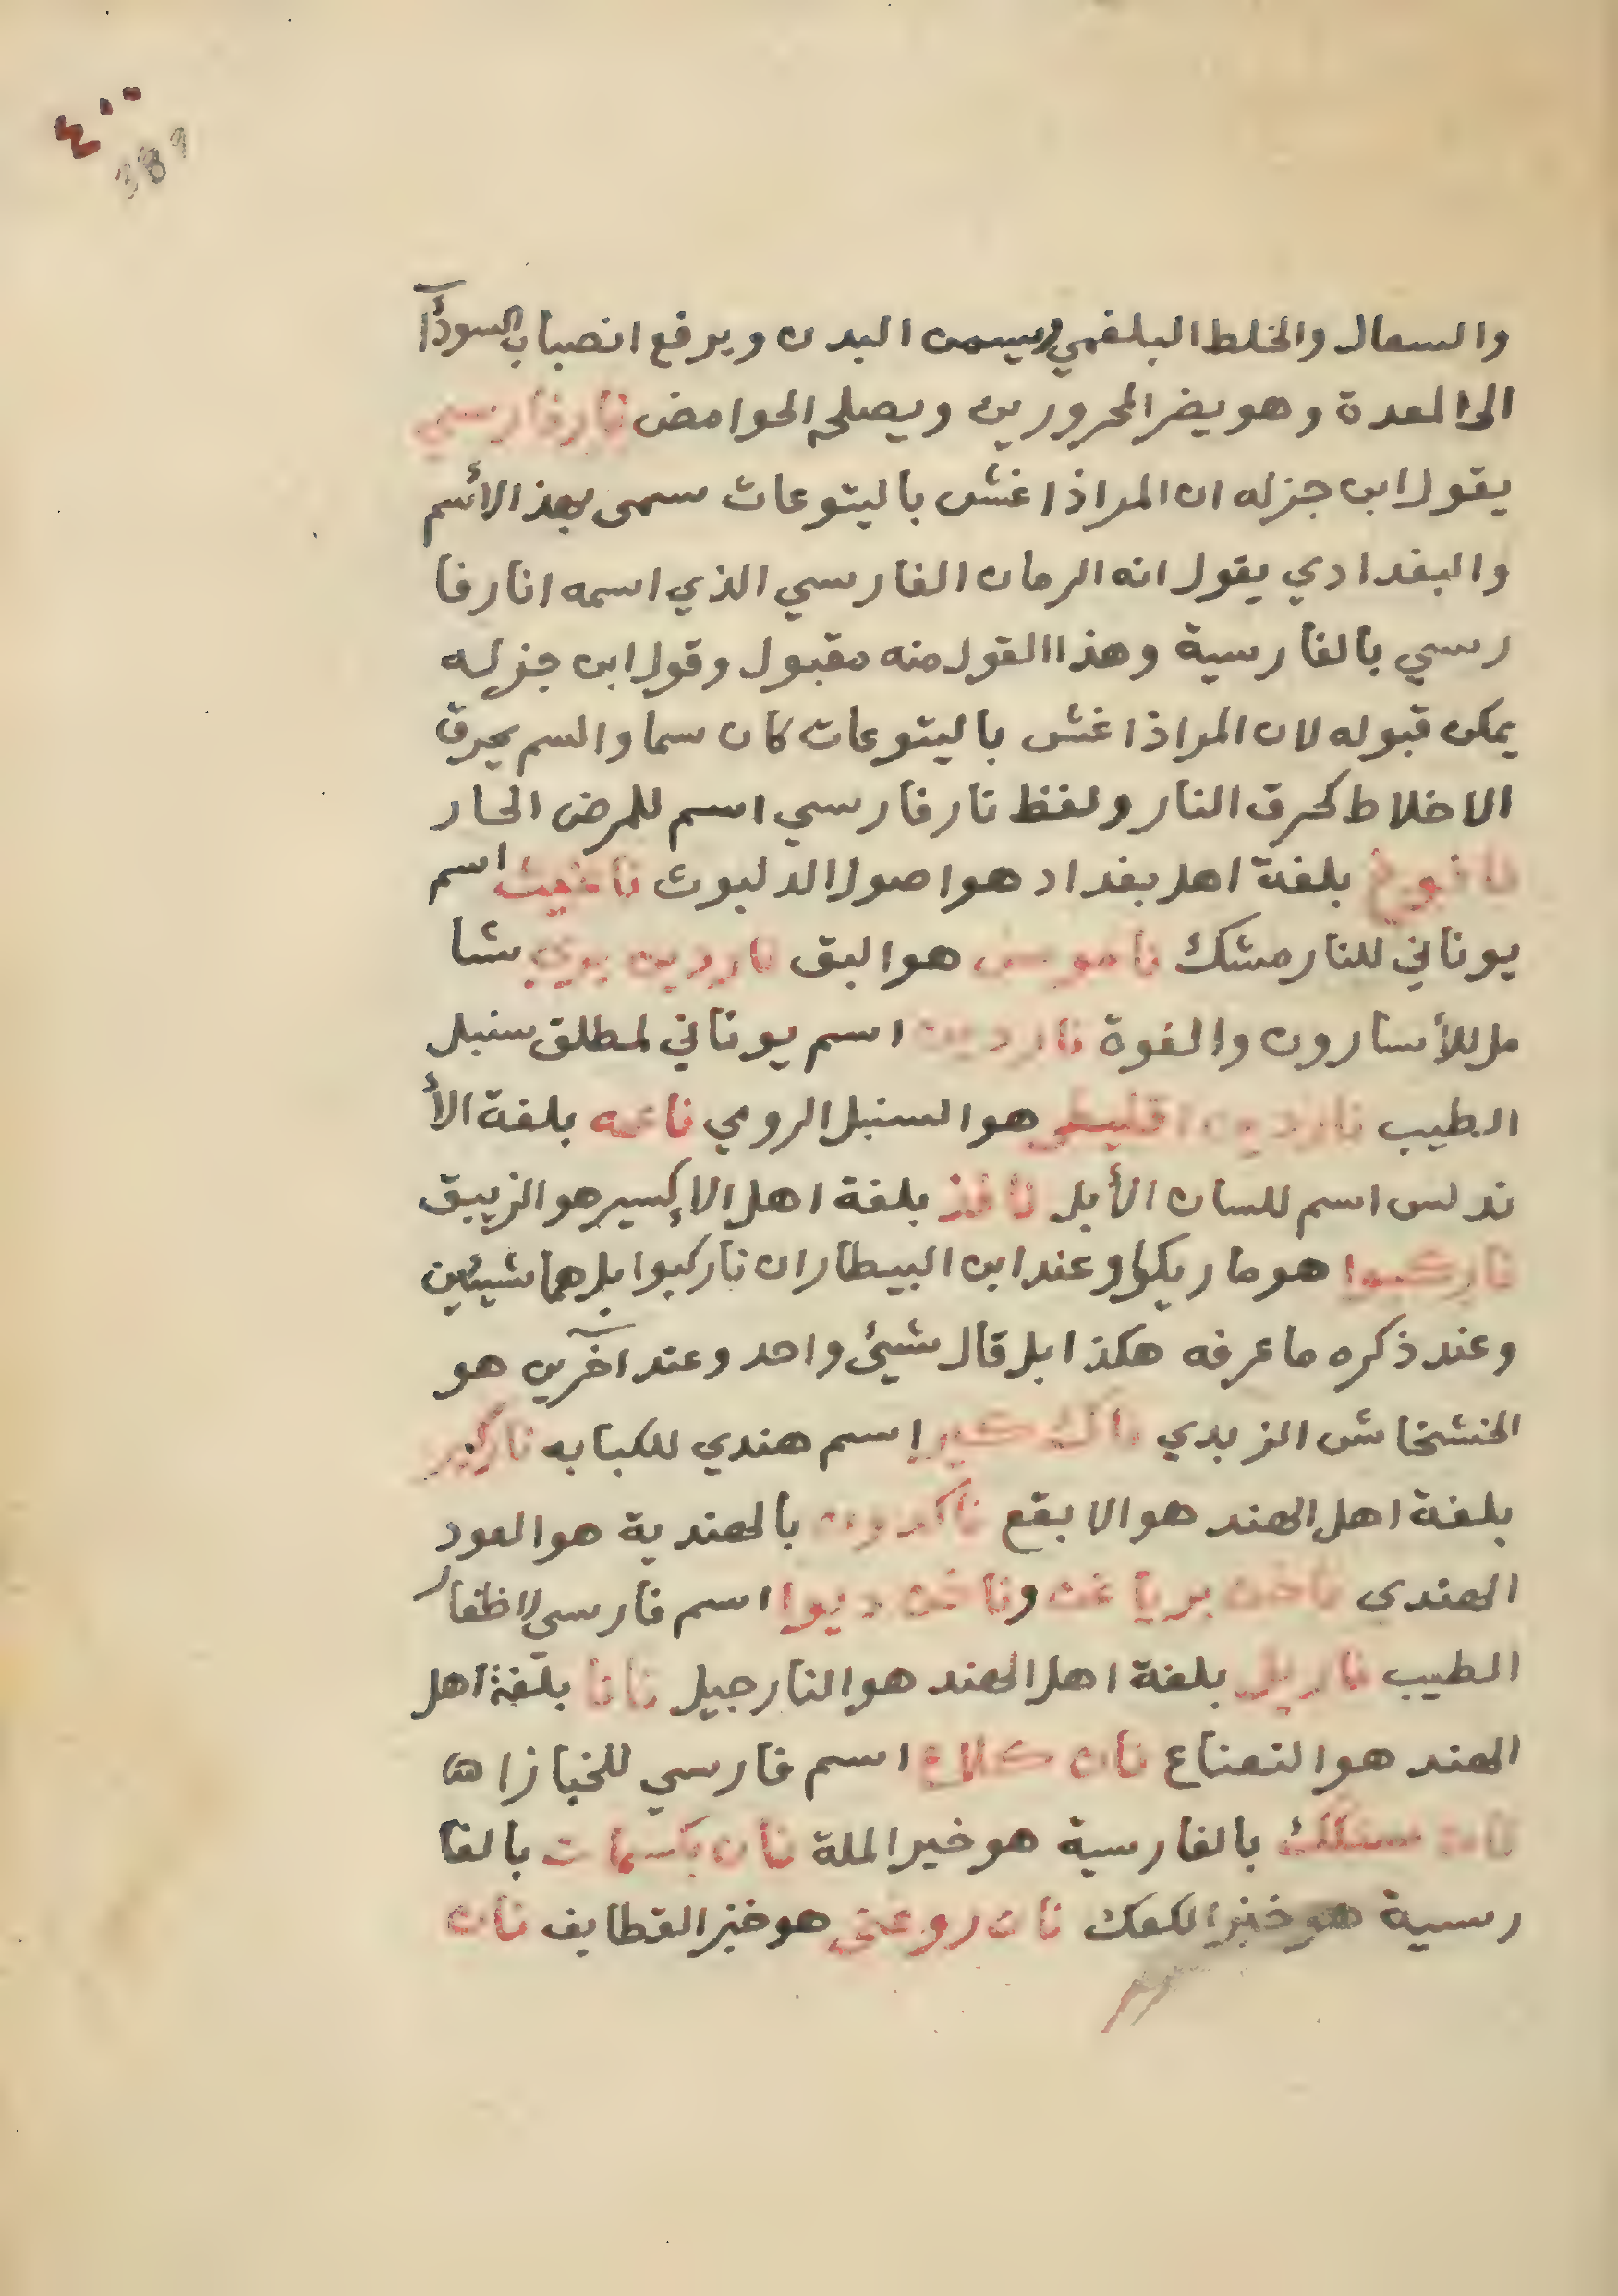 ٤٠٠
389
والسعال والخلط البلغمي ويسمن البدن ويرفع انصباب السودآأ
الى المعدة وهو يضر المحرورين ويصلحه الحوامض نار فارسي
يقول ابن جزله ان المر اذا غش باليتوعات سمى بهذ الأسم
والبغدادي يقول انه الرمان الفارسي الذي اسمه انار فا
رسي بالفارسية وهذا القول منه مقبول وقول ابن جزله
يمكن قبوله لان المر اذا غش باليتوعات كان سما والسم يحرق
الاخلاط كحرق النار ولفظ نار فارسي اسم للمرض الحار
بلغة اهل بغداد هو اصول الدلبوث ناغيث اسم
يوناني للنارمشك ناموس هو البق ناردين بري شا
مل للأسارون والفوة ناردين اسم يوناني لمطلق سنبل
الطيب ناردين اقليطي هو السنبل الرومي ناعمه بلغة الأ
ندلس اسم للسان الأبل نافذ بلغة اهل الإكسير هو الزيبق
ناركيوا هو ماريكوا وعند ابن البيطار ان ناركيوا بل هما شيئين
وعند ذكره ما عرفه هكذا بل قال شيئ واحد وعند آخرين هو
الخشخاش الزبدي اسم هندي للكبابه ناركير
بلغة اهل الهند هو الابقع ناكدون بالهندية هو العود
الهندى ناخن برياغن وناخن ديوا اسم فارسي لاظفار
الطيب ناريل بلغة اهل الهند هو النارجيل نانا بلغة اهل
الهند هو النعناع نان كلاغ اسم فارسي للخبازا ه
نان سنكك بالفارسية هو خير الملة نان بكسمات بالفا
رسية هو خبز الكعك نان روغني هو خبز القطايف نان